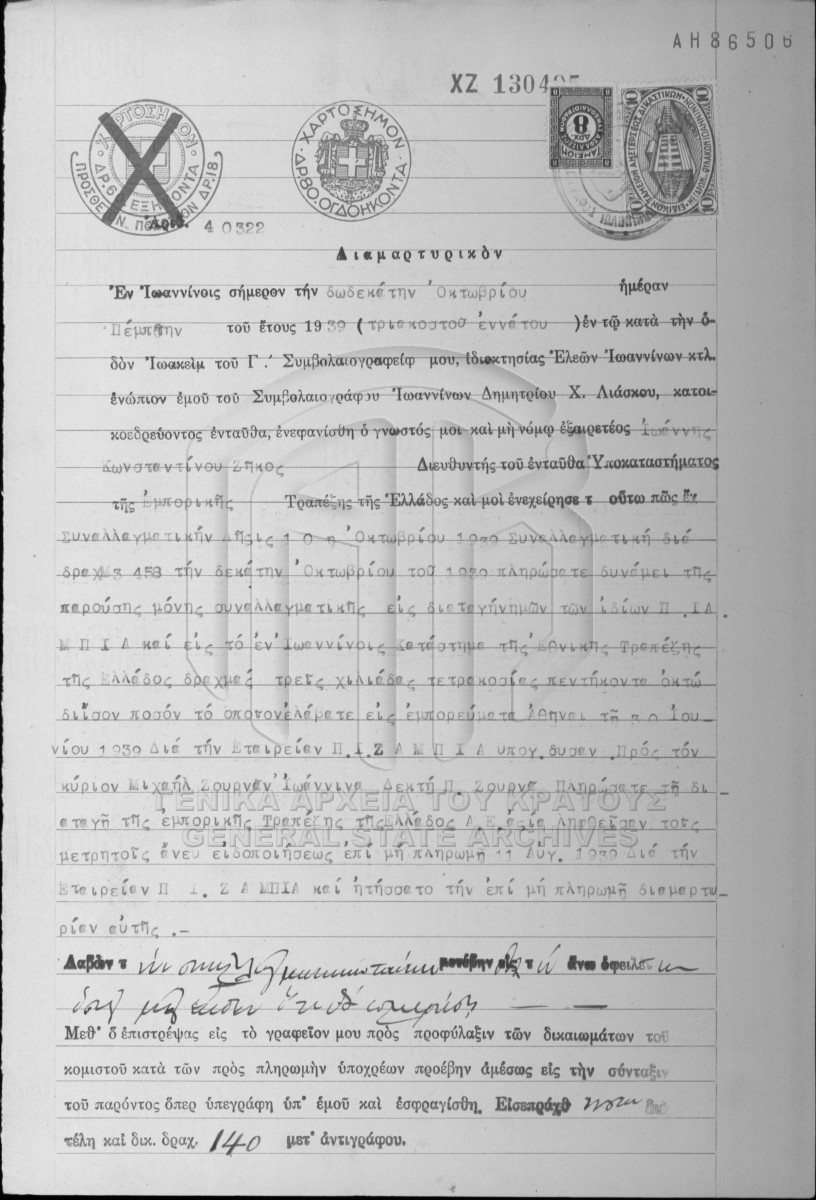 ΑΗ86506
ΧΖ 130495
ΧΑΡΤΟΣΗΜΟΝ
ΔΡ. 60. ΕΞΗΚΟΝΤΑ
ΧΑΡΤΟΣΗΜΟΝ
ΔΡ. 80. ΟΓΔΟΗΚΟΝΤΑ
8
10 10
Ἀριθ. 40322
Διαμαρτυρικὸν
Ἐν Ἰωαννίνοις σήμερον τὴν δωδεκάτην Ὀκτωβρίου ἡμέραν
Πέμπτην τοῦ ἔτους 1939 (τριακοστοῦ ἐννάτου) ἐν τῷ κατὰ τὴν ὁ-
δὸν Ἰωακεὶμ τοῦ Γ.΄ Συμβολαιογραφείῳ μου, ἰδιοκτησίας Ἐλεῶν Ἰωαννίνων κτλ.
ἐνώπιον ἐμοῦ τοῦ Συμβολαιογράφου Ἰωαννίνων Δημητρίου Χ. Λιάσκου, κατοι-
κοεδρεύοντος ἐνταῦθα, ἐνεφανίσθη ὁ γνωστός μοι καὶ μὴ νόμῳ ἐξαιρετέος Ἰωάννης
Κωνσταντίνου Ζῆκος Διευθυντής τοῦ ἐνταῦθα Ὑποκαταστήματος
τῆς Ἐμπορικῆς Τραπέζης τῆς Ἑλλάδος καὶ μοὶ ἐνεχείρησε τ οὕτω πῶς ἔχ
Συναλλαγματικήν Λῆξις 10 η Ὀκτωβρίου 1939 Συναλλαγματική διά
δραχμ3 458 τήν δεκάτην Ὀκτωβρίου τοῦ 1939 πληρώσατε δυνάμει τῆς
παρούσης μόνης συναλλαγματικῆς εἰς διαταγήνημῶν τῶν ἰδίων Π .ΙΑ.
ΜΠΙΑ καί εἰς τό ἐν Ἰωαννίνοις Κατάστημα τῆς Ἐθνικῆς Τραπέζης
τῆς Ἑλλάδος δραχμάς τρεῖς χιλιάδας τετρακοσίας πεντήκοντα ὀκτώ
διἴσον ποσόν τό ὁποῖονἐλάβατε εἰς ἐμπορεύματα Ἀθῆναι τῇ 30 Ιου-
νίου 1939 Διά τήν Εταιρείαν Π.Ι.ΖΑΜΠΙΑ υπογ.δυσαν .Πρός τόν
κύριον Μιχαήλ Ζουρνᾶν Ἰωάννινα Δεκτή Π. Ζουρνᾶ Πληρώσατε τῇ δι-
αταγῇ τῆς ἐμπορικῆς Τραπέζης τῆςΕλλάδος Α.Ε.ἀξία ληφθεῖσαν τοῖς
μετρητοῖς ἄνευ εἰδοποιήσεως ἐπί μή πληρωμῇ 11 Αυγ. 1939 Διά τήν
Εταιρείαν Π .Ι. ΖΑΜΠΙΑ καί ἠτήσσατο τήν ἐπί μή πληρωμῇ διαμαρτυ-
ρίαν αὐτῆς .-
Λαβὼν τ μετέβην εἰς τ ἄνω ὀφειλετ
Μεθ' ὃ ἐπιστρέψας εἰς τὸ γραφεῖον μου πρὸς προφύλαξιν τῶν δικαιωμάτων τοῦ
κομιστοῦ κατὰ τῶν πρὸς πληρωμὴν ὑποχρέων προέβην ἀμέσως εἰς τὴν σύνταξιν
τοῦ παρόντος ὅπερ ὑπεγράφη ὑπ' ἐμοῦ καὶ ἐσφραγίσθη. Εἰσεπράχθ διὰ
τέλη καὶ δικ. δραχ. 140 μετ' ἀντιγράφου.
ΓΕΝΙΚΑ ΑΡΧΕΙΑ ΤΟΥ ΚΡΑΤΟΥΣ
GENERAL STATE ARCHIVES